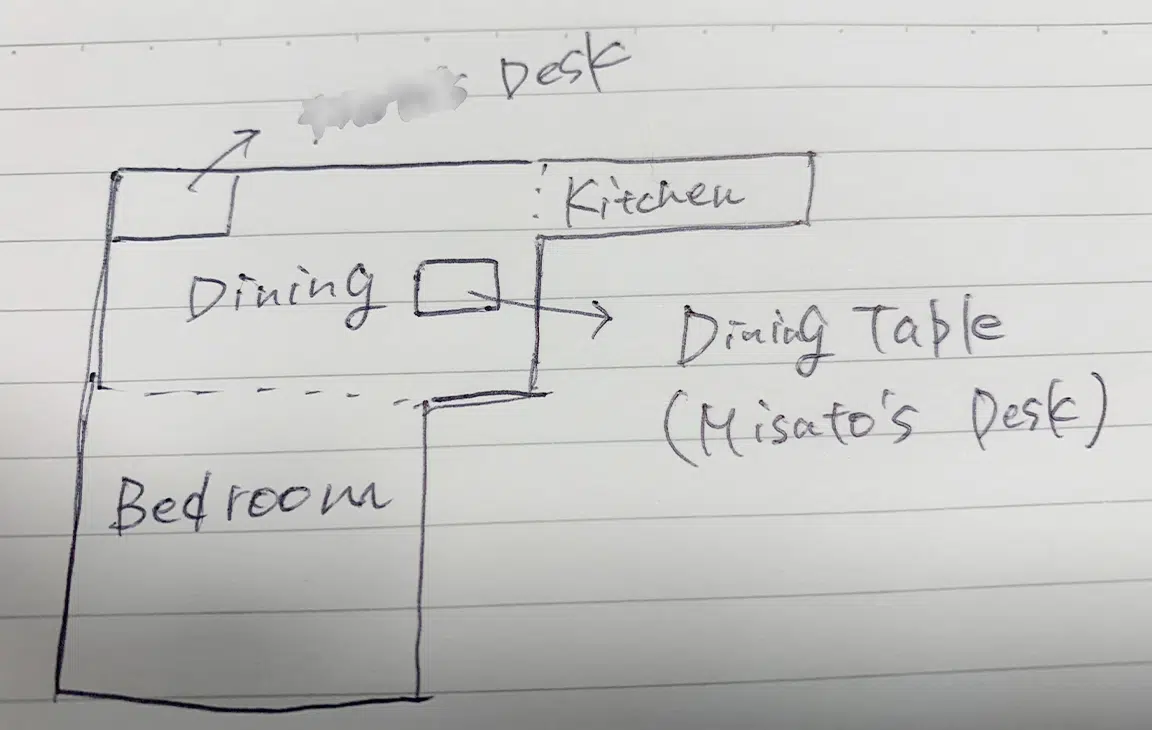 Desk
Kitchen
Dining
Dining Table
(Misato's Desk)
Bedroom